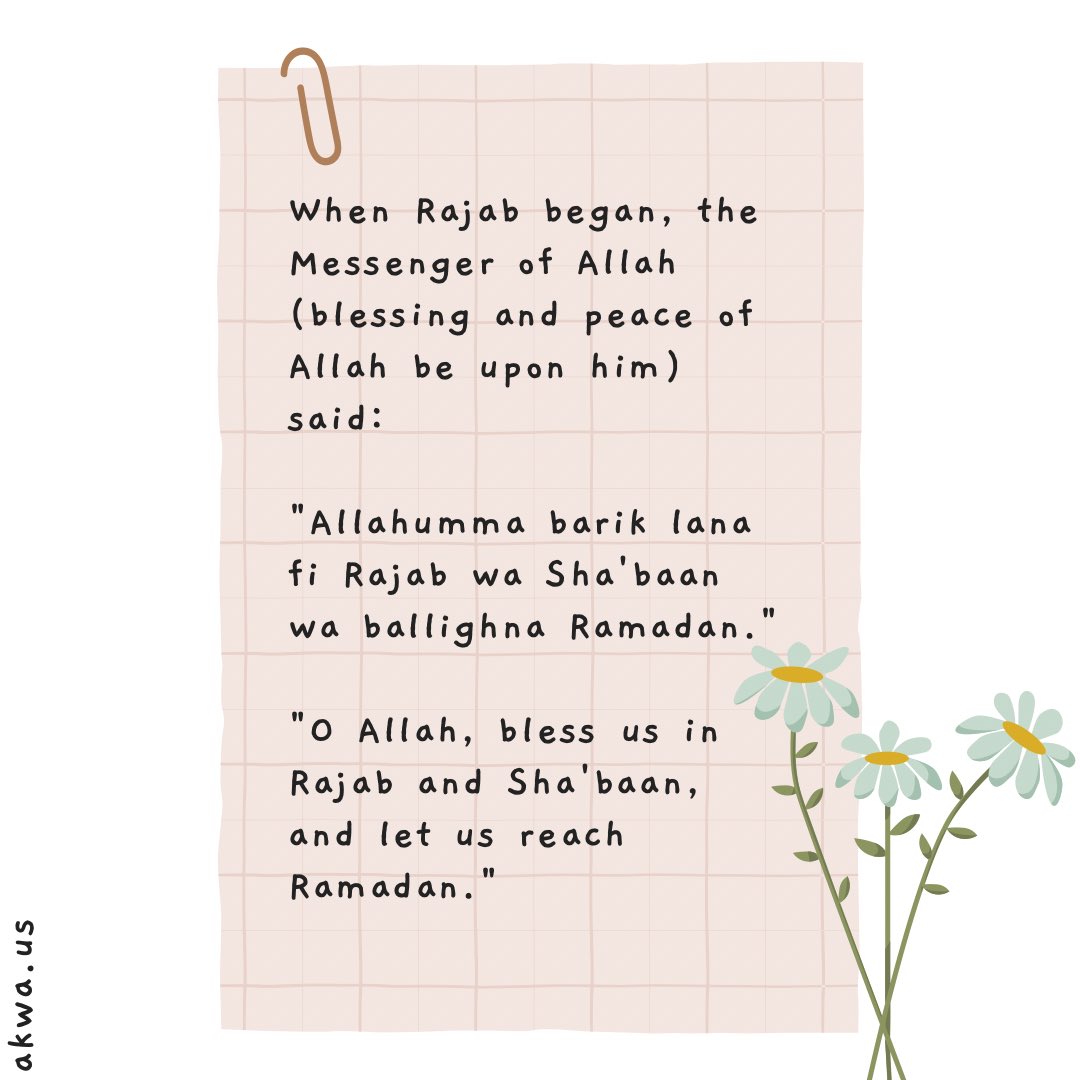 When Rajab began, the
Messenger of Allah
(blessing and peace of
Allah be upon him)
said:
"Allahumma barik lana
fi Rajab wa Sha'baan
wa ballighna Ramadan."
"O Allah, bless us in
Rajab and Sha'baan,
and let us reach
Ramadan."
akwa.us